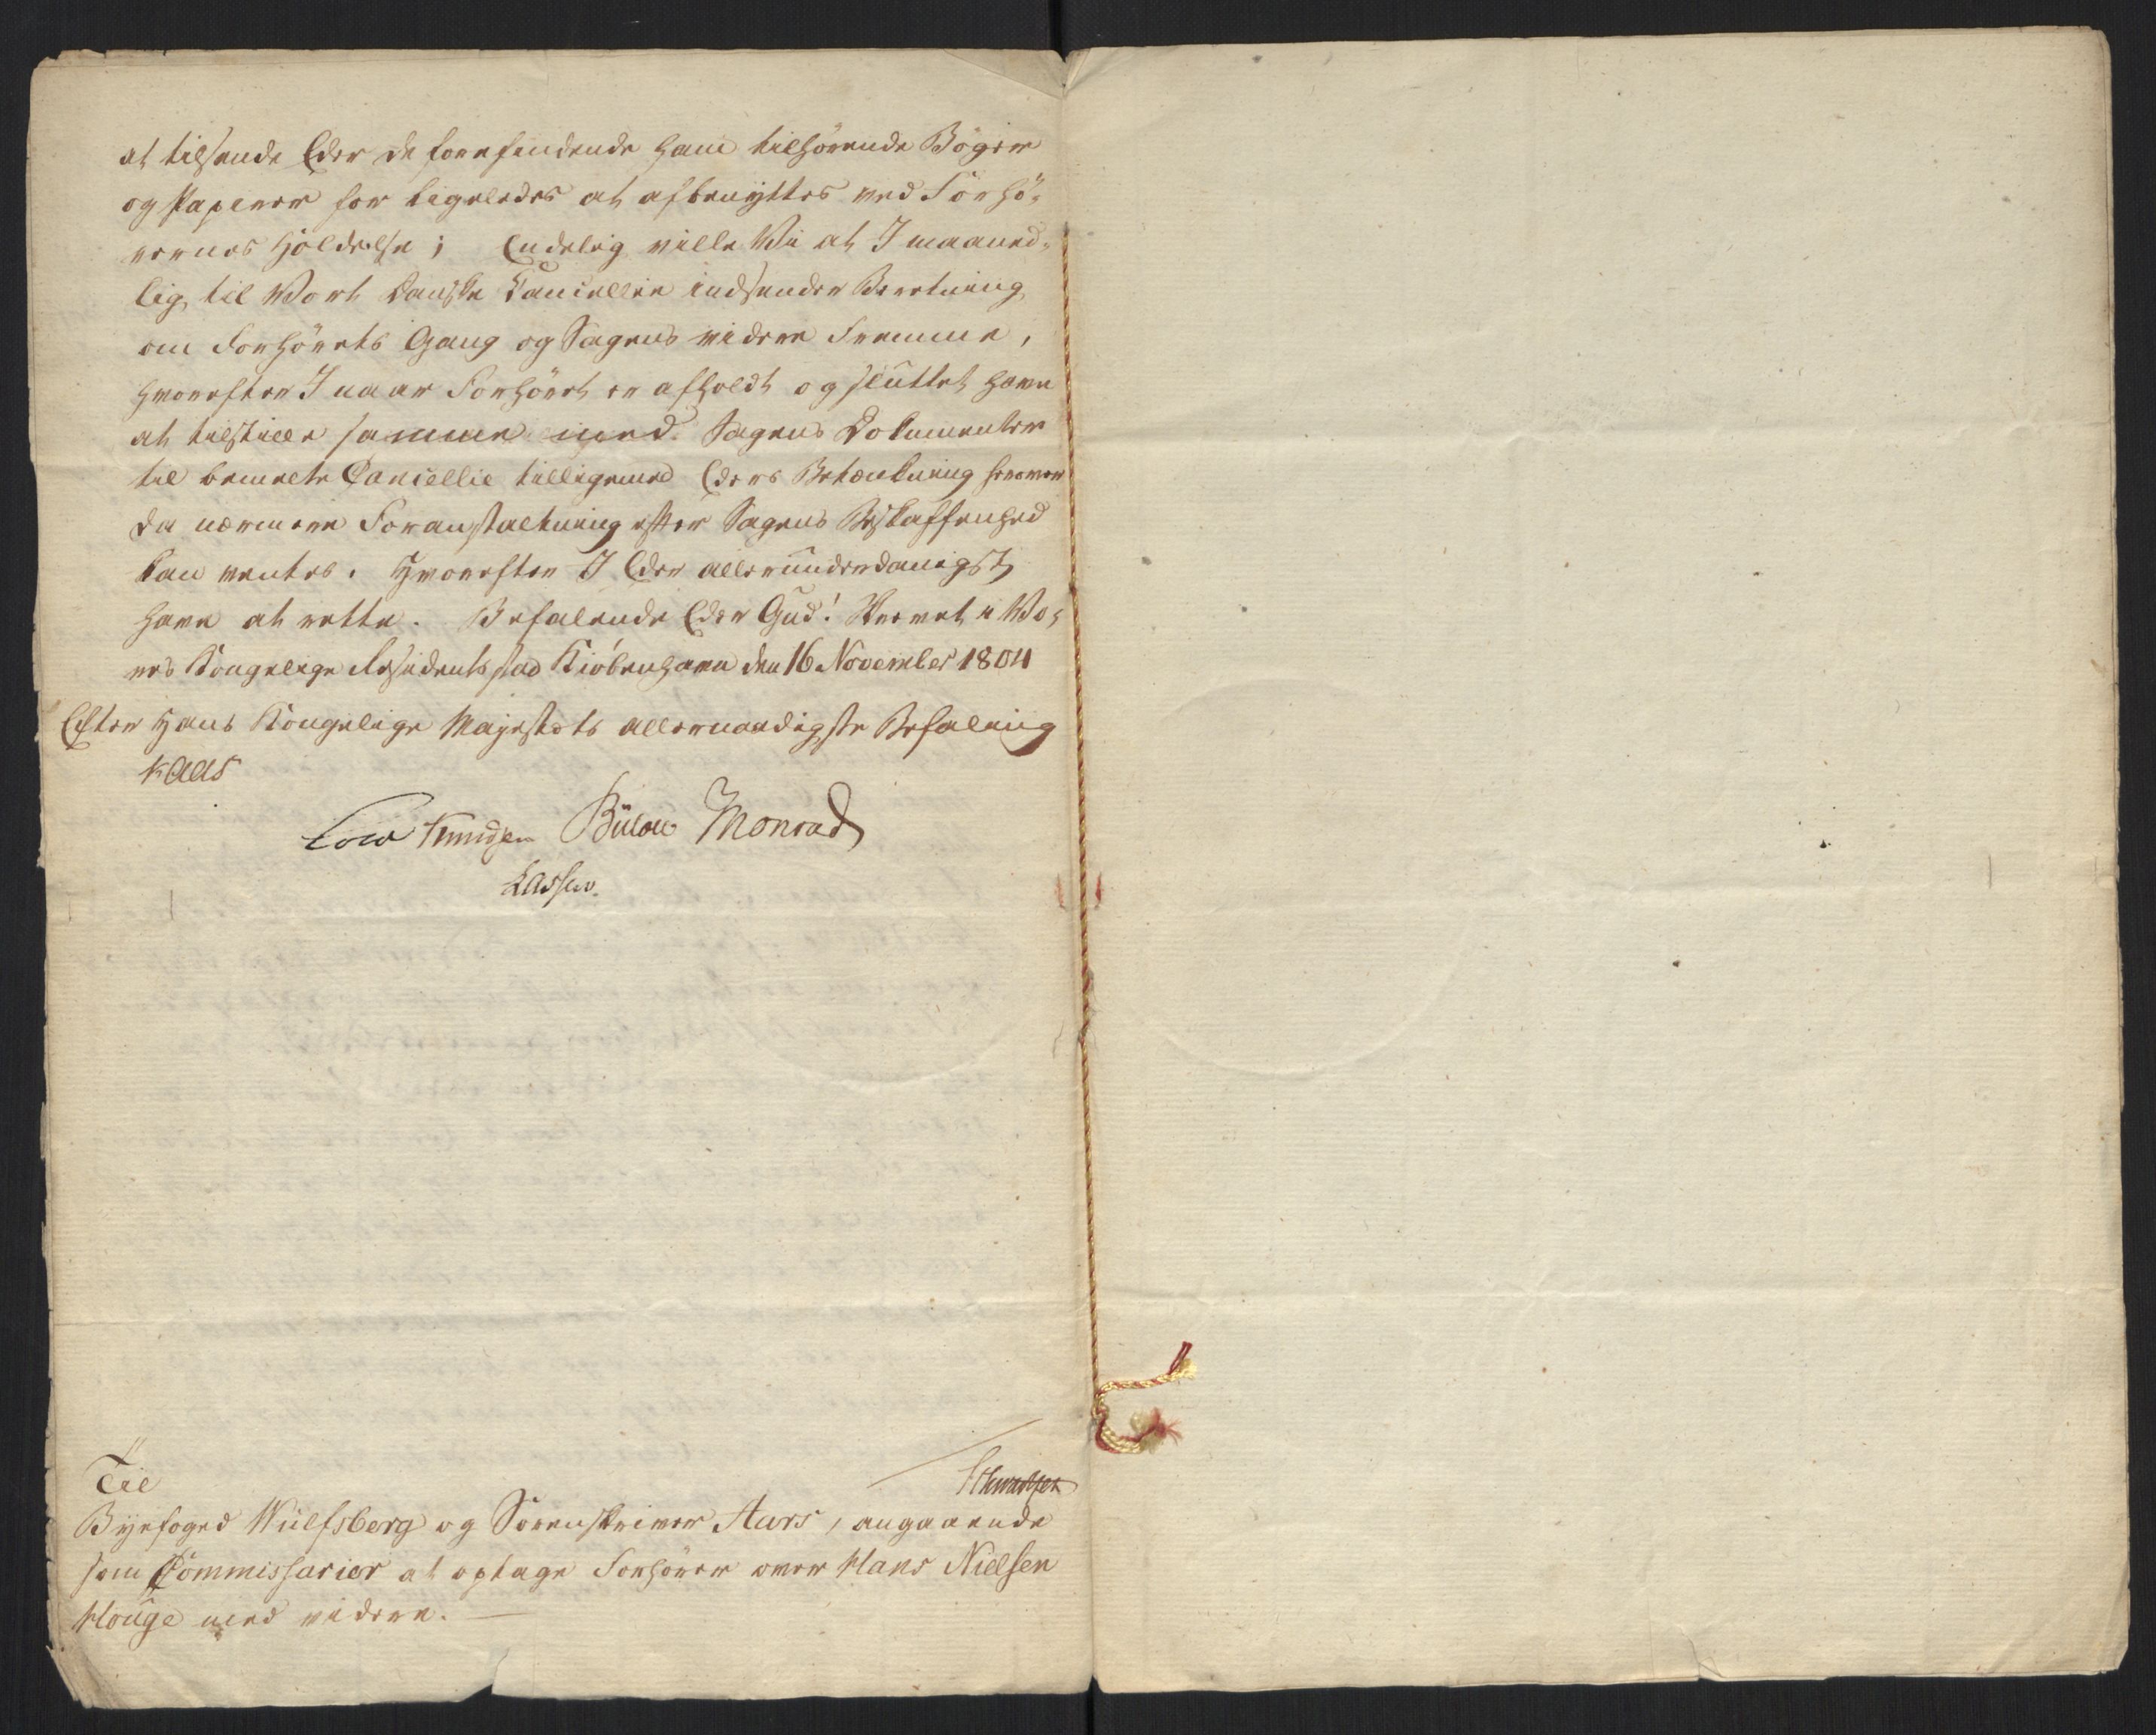 at tilsende Eder de forefindende ham tilhørende Bøger
og Papirer for ligeledes at afbenyttes ved Forhø-
rernes Holdelse; Endelig ville Vi at I maaned-
lig til Vort Danske Cancellie indsender Beretning
om Forhørets Gang og Sagens videre Fremme,
hvorefter I naar Forhøret er afholdt og sluttet have
at tilstille samme med Sagens Dokumenter
til bemelte Cancellie tilligemed Eders Betænkning herover
da nærmere Foranstaltning efter Sagens Beskaffenhed
kan ventes. Hvorefter I Eder allerunderdanigst
have at rette. Befalende Eder Gud! Skrevet i Vo-
res Kongelige Residentsstad Kiøbenhavn den 16 November 1804
Efter Hans Kongelige Majestæts allernaadigste Befaling
Kaas
Cold Knudsen Bülow Monrad
Lassen.
Til
Byefoged Wülfsberg og Sorenskriver Aars, angaaende
som Commissarier at optage Forhører over Hans Nielsen
Houge med videre.